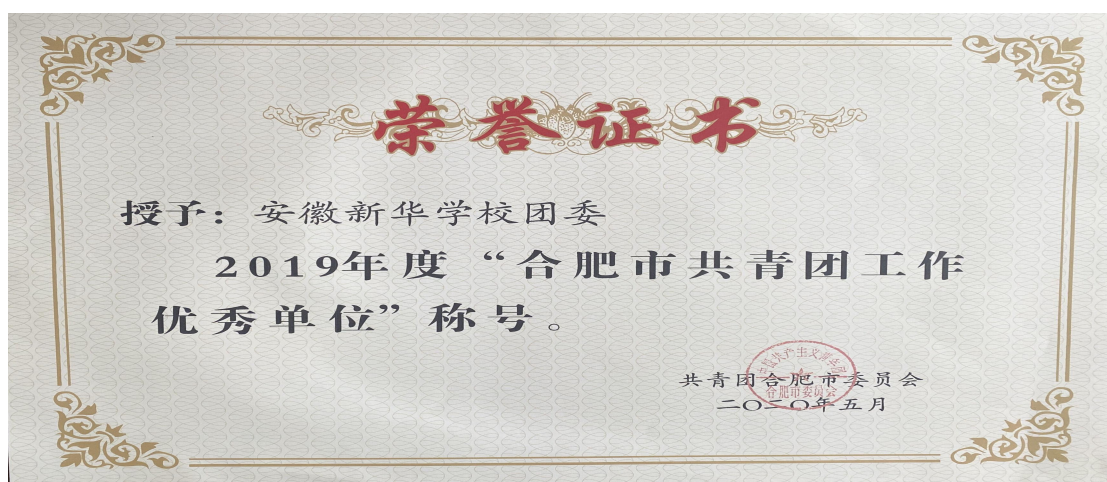 荣誉证书
授予：安徽新华学校团委
2019年度“合肥市共青团工作
优秀单位”称号。
共青团合肥市委员会
二〇二〇年五月
中国共产主义青年团
合肥市委员会